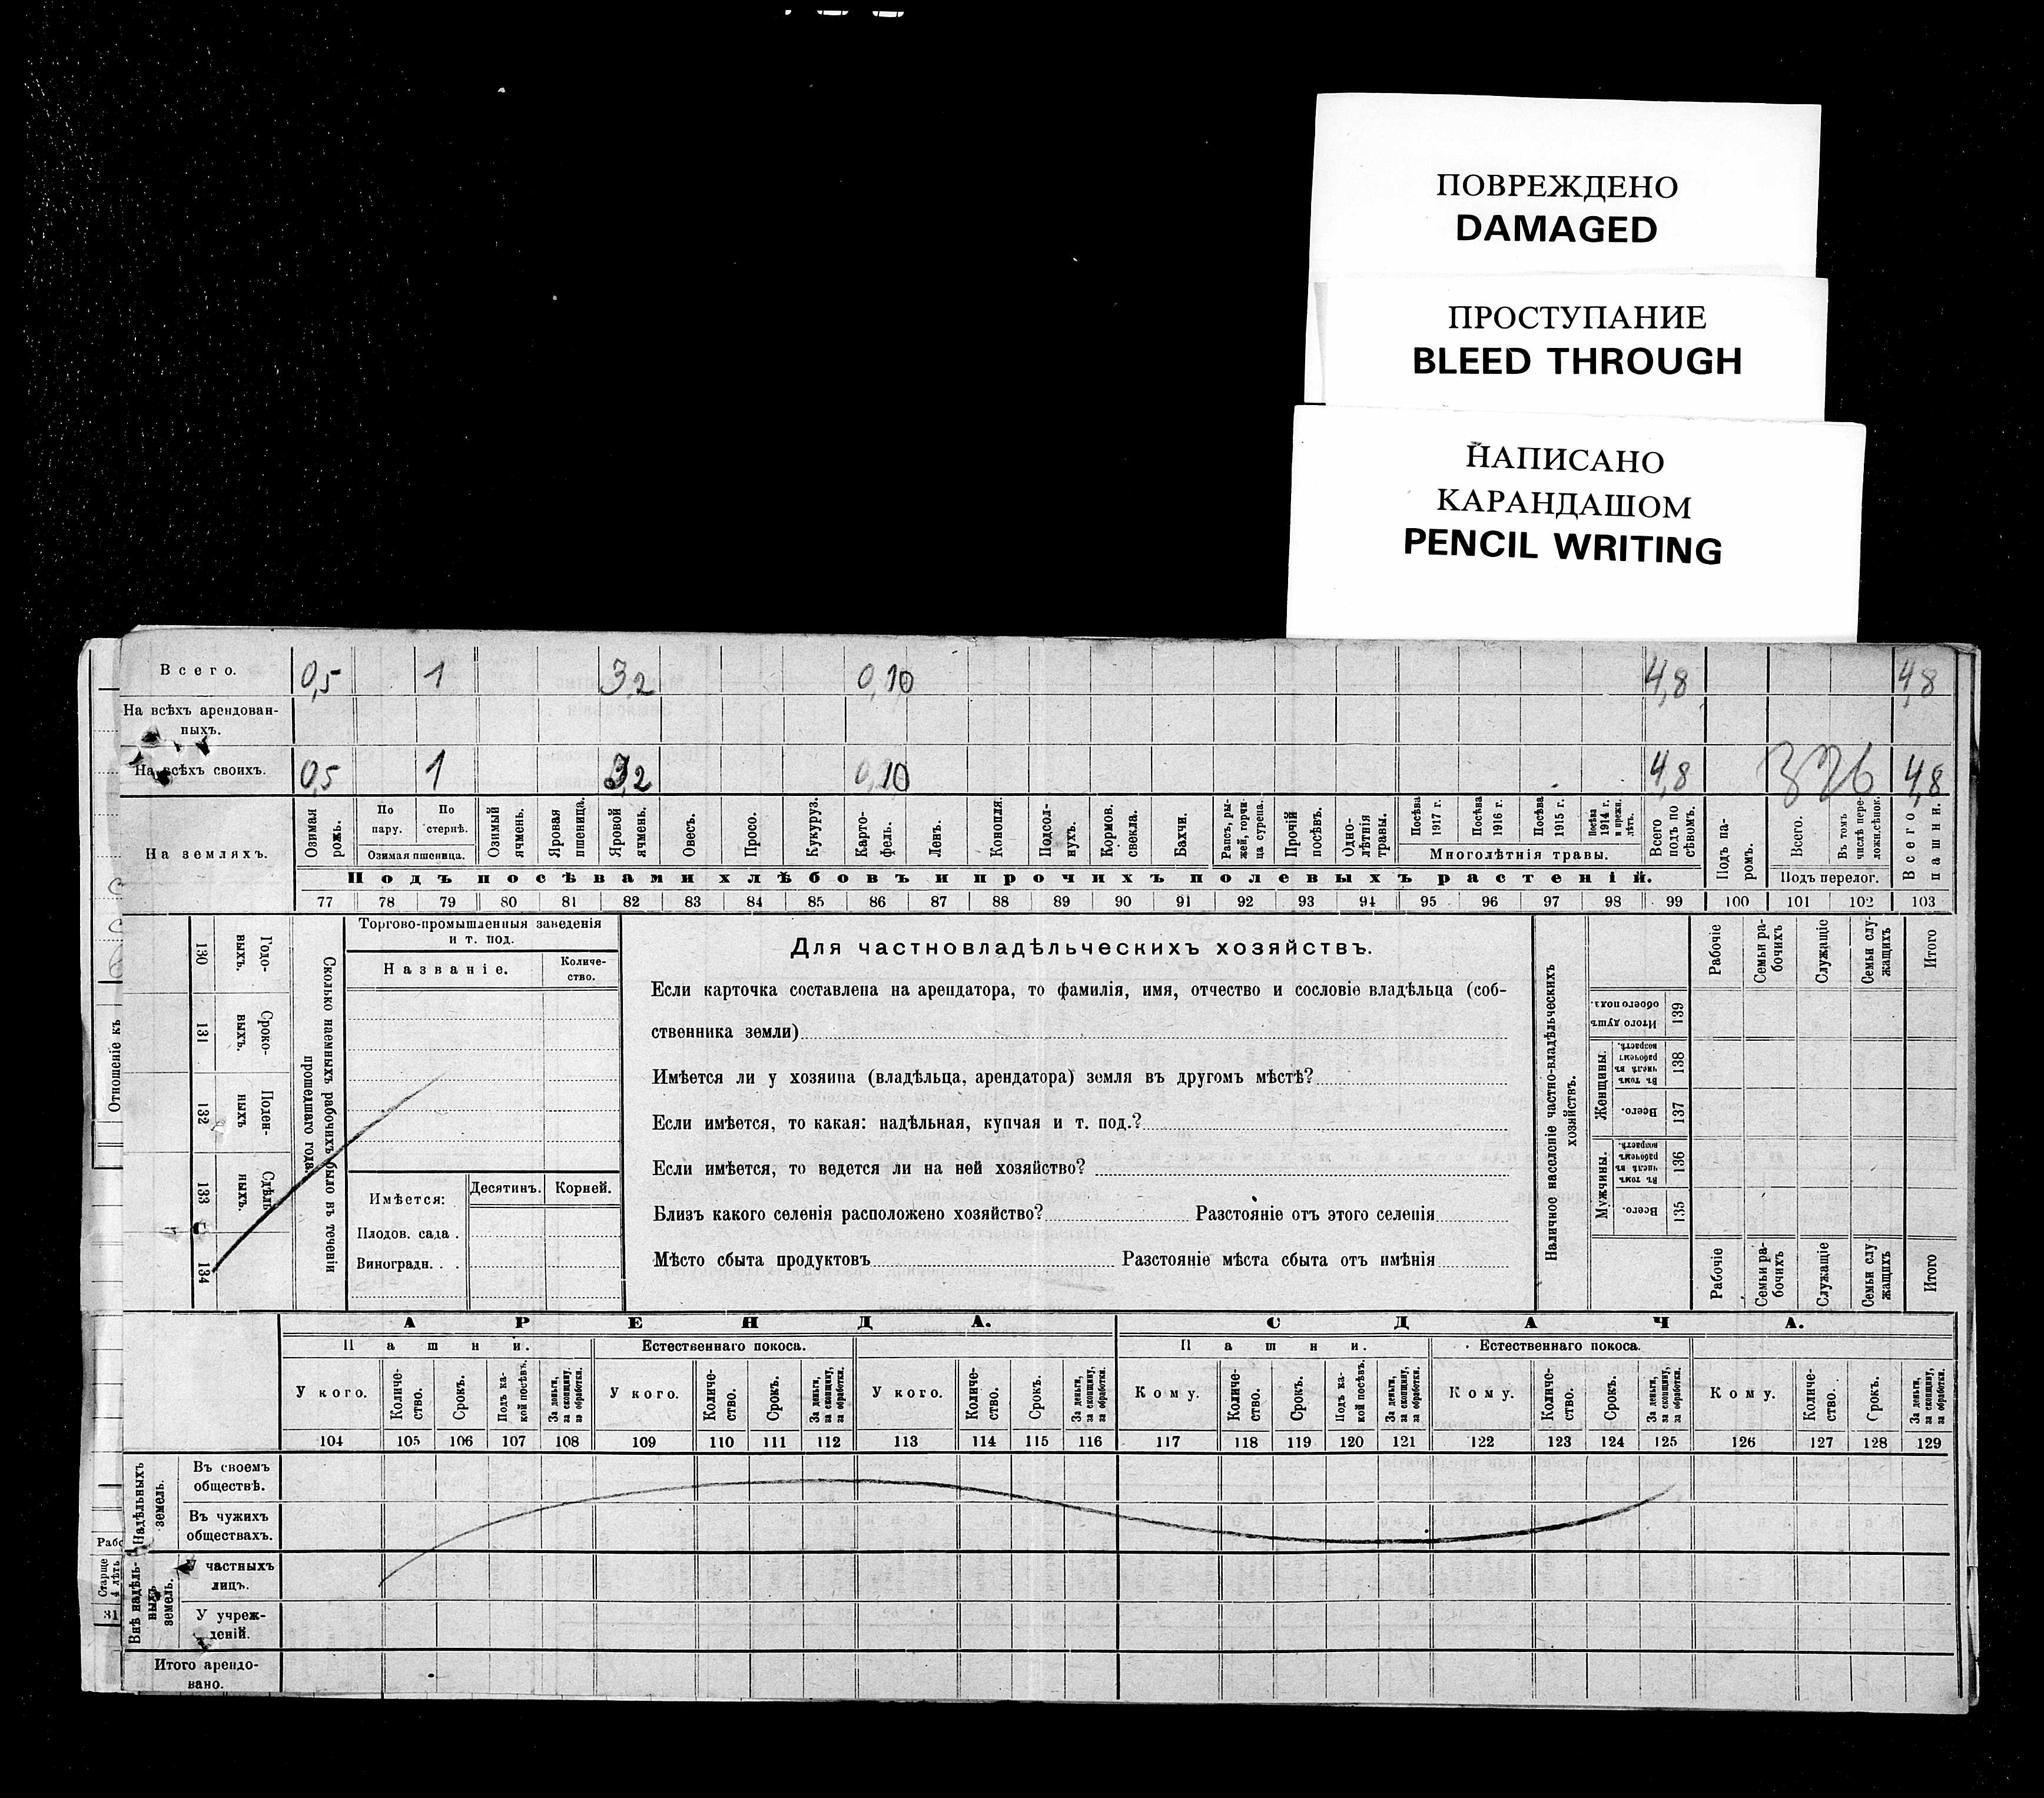 ПОВРЕЖДЕНО
DAMAGED
ПРОСТУПАНИЕ
BLEED THROUGH
НАПИСАНО
КАРАНДАШОМ
PENCIL WRITING
Всего. 0,5 1 3,2 0,10 4,8 4,8
На всѣхъ арендован-
ныхъ.
На всѣхъ своихъ. 0,5 1 3,2 0,10 4,8 326 4,8
На земляхъ.
Озимая рожь.
По пару.
По стернѣ.
Озимая пшеница.
Озимый ячмень.
Яровая пшеница.
Яровой ячмень.
Овесъ.
Просо.
Кукуруз.
Карто-
фель.
Ленъ.
Конопля.
Подсол-
нухъ.
Кормов. свекла.
Бахчи.
Рапсъ, ры-
жей, горчи-
ца сурепа.
Прочій посѣвъ.
Одно-
лѣтнія травы.
Посѣва 1917 г.
Посѣва 1916 г.
Посѣва 1915 г.
Посѣва 1914 г. и прежн. лѣтъ.
Многолѣтнія травы.
Всего подъ по
сѣвомъ.
Подъ па-
ромъ.
Всего.
Въ томъ числѣ пере-
ложн.сѣнок.
Подъ перелог.
Всего пашни.
Подъ посѣвами хлѣбовъ и прочихъ полевыхъ растеній.
77 78 79 80 81 82 83 84 85 86 87 88 89 90 91 92 93 94 95 96 97 98 99 100 101 102 103
130 Годо-
выхъ.
131 Сроко-
выхъ.
132 Поден-
ныхъ
133 Сдѣль
ныхъ.
134
Сколько наемныхъ рабочихъ было въ теченіи
прошедшаго года.
Торгово-промышленныя заведенія
и т. под.
Названіе.
Количе-
ство.
Имѣется: Десятинъ. Корней.
Плодов. сада .
Виноградн. . .
Для частновладѣльческихъ хозяйствъ.
Если карточка составлена на арендатора, то фамилія, имя, отчество и сословіе владѣльца (соб-
ственника земли)
Имѣется ли у хозяина (владѣльца, арендатора) земля въ другомъ мѣстѣ?
Если имѣется, то какая: надѣльная, купчая и т. под.?
Если имѣется, то ведется ли на ней хозяйство?
Близъ какого селенія расположено хозяйство? Разстояніе отъ этого селенія
Мѣсто сбыта продуктовъ Разстояніе мѣста сбыта отъ имѣнія
Наличное населеніе частно-владѣльческихъ
хозяйствъ.
Рабочіе
Семьи ра-
бочихъ
Служащіе
Семьи слу-
жащихъ
Итого
139 Итого душъ обоего пола.
Женщины.
138 Въ томъ числѣ въ рабочемъ возрастѣ.
137 Всего.
Мужчины.
136 Въ томъ числѣ въ рабочемъ возрастѣ.
135 Всего.
Рабочіе
Семьи ра-
бочихъ
Служащіе
Семьи слу
жащихъ
Итого
АРЕНДА. СДАЧА.
Пашни. Естественнаго покоса. Пашни. Естественнаго покоса.
У кого. Количе-
ство. Срокъ. Подъ ка-
кой посѣвъ. За деньги, за скопщину, за обработки.
У кого. Количе-
ство. Срокъ. За деньги, за скопщину, за обработки.
У кого. Количе-
ство. Срокъ. За деньги, за скопщину, за обработки.
Кому. Количе-
ство. Срокъ. Подъ ка-
кой посѣвъ. За деньги, за скопщину, за обработки.
Кому. Количе-
ство. Срокъ. За деньги, за скопщину, за обработки.
Кому. Количе-
ство. Срокъ. За деньги, за скопщину, за обработки.
104 105 106 107 108 109 110 111 112 113 114 115 116 117 118 119 120 121 122 123 124 125 126 127 128 129
Надѣльныхъ
земель.
Въ своемъ
обществѣ.
Въ чужихъ
обществахъ.
Внѣ надѣль-
ныхъ
земель.
У частныхъ
лицъ.
У учреж-
деній.
Итого арендо-
вано.
Отношеніе къ
Рабо
Старше
4 лѣтъ.
31